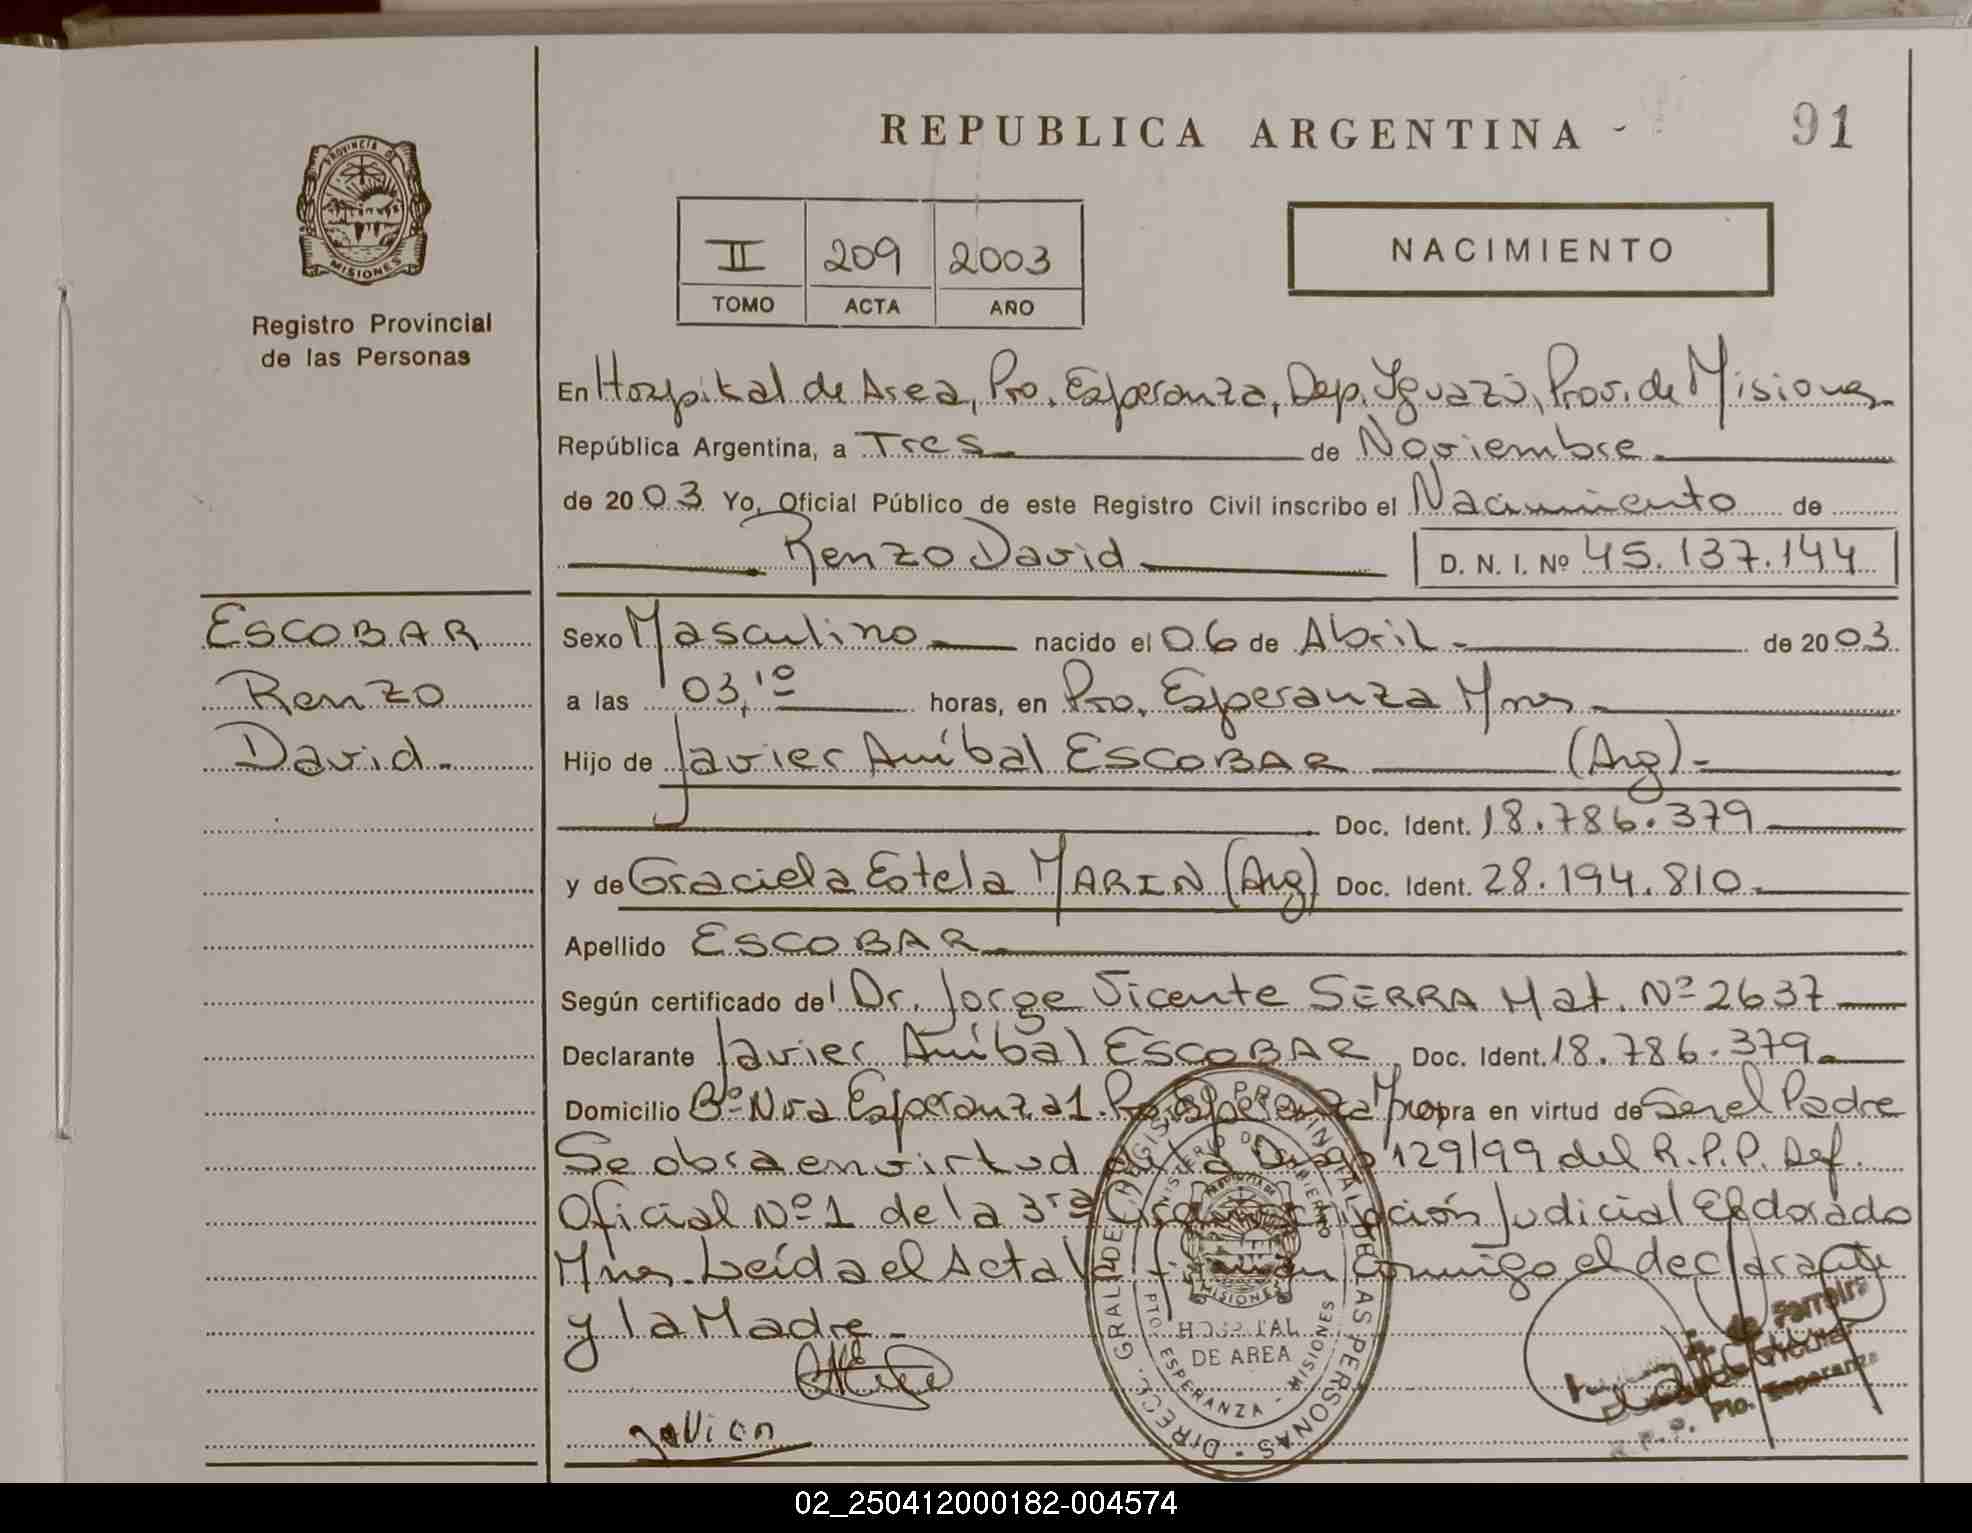 REPUBLICA ARGENTINA
91
PROVINCIA DE
MISIONES
Registro Provincial
de las Personas
II 209 2003
TOMO ACTA AÑO
NACIMIENTO
En Hospital de Area, Pto. Esperanza, Dep. Iguazú, Prov. de Misiones
República Argentina, a Tres de Noviembre
de 2003 Yo, Oficial Público de este Registro Civil inscribo el Nacimiento de
Renzo David D. N. I. Nº 45.137.144
ESCOBAR
Renzo
David.-
Sexo Masculino nacido el 06 de Abril de 2003
a las 03,10 horas, en Pto. Esperanza Mnes
Hijo de Javier Aníbal ESCOBAR (Arg).-
Doc. Ident. 18.786.379
y de Graciela Estela MARIN (Arg) Doc. Ident. 28.194.810
Apellido ESCOBAR
Según certificado del Dr. Jorge Vicente SERRA Mat. Nº 2637
Declarante Javier Aníbal ESCOBAR Doc. Ident. 18.786.379
Domicilio Bº Ntra Esperanza 1. Pto Esperanza obra en virtud de Ser el Padre
Se obra en virtud de la 129/99 del R.P.P. Def.
Oficial Nº 1 de la 3ra Circunscripción Judicial Eldorado
Mnes. Leída el Acta la firman Conmigo el declarante
y la Madre.-
DIRECC. GRAL DEL REGISTRO PROVINCIAL DE LAS PERSONAS
MINISTERIO DE GOBIERNO
MISIONES
HOSPITAL
DE AREA
PTO. ESPERANZA - MISIONES
de Ferreira
Pto. Esperanza
02_250412000182-004574